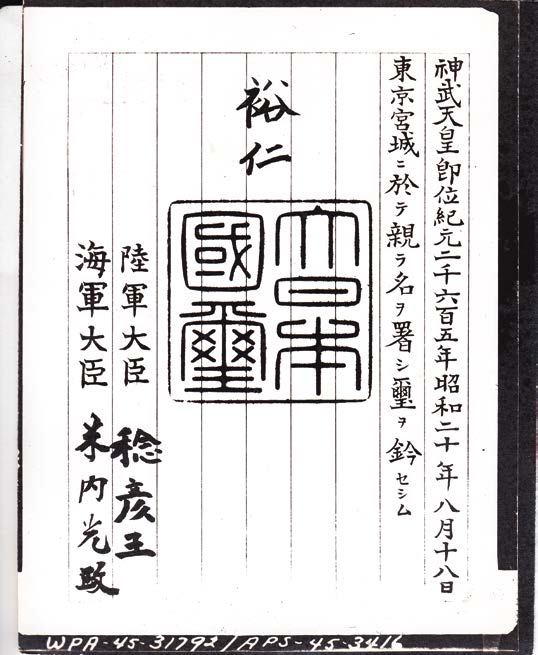 神武天皇卽位紀元二千六百五年昭和二十年八月十八日
東京宮城ニ於テ親ラ名ヲ署シ璽ヲ鈐セシム
裕仁
大日本
國璽
陸軍大臣 稔彦王
海軍大臣 米内光政
WPA-45-31792/APS-45-3416